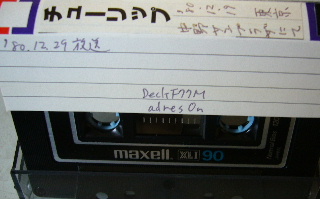 チューリップ
'80.12.19 東京
中野サンプラザにて
'80.12.29 放送
Deck F77M
adres On
maxell XLI 90